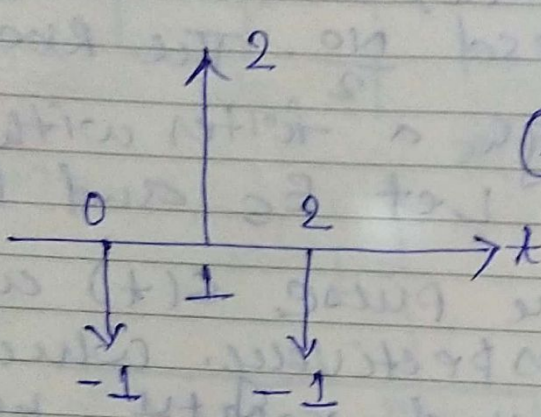 2
0 2
t
1
-1 -1